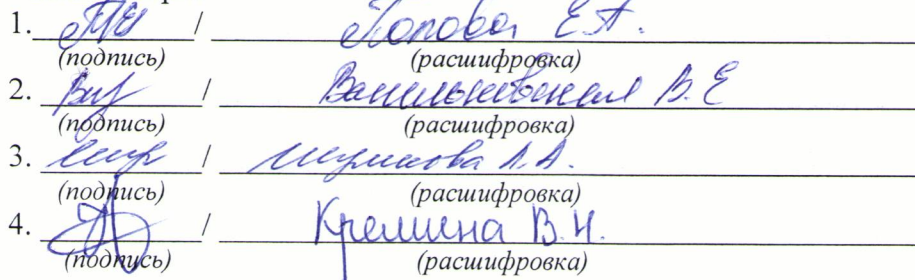 1. / Попова Е.А.
(подпись) (расшифровка)
2. / Васильковская В.Е
(подпись) (расшифровка)
3. / Шумилова Л.А.
(подпись) (расшифровка)
4. / Кремина В.Н.
(подпись) (расшифровка)